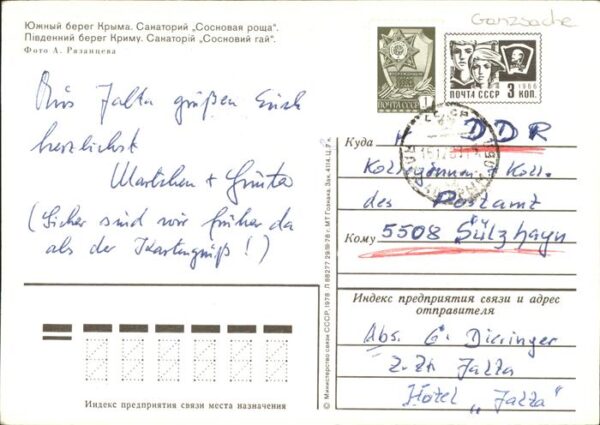 Южный берег Крыма. Санаторий „Сосновая роща".
Південний берег Криму. Санаторій „Сосновий гай".
Фото А. Рязанцева
Ganzsache
ПОЧТА СССР 1
ПОЧТА СССР 3 КОП.
1966
Aus Jalta grüßen Euch
herzlichst
+ Günter
(Sicher sind wir früher da
als der Kartengruß!)
Куда DDR
Kolleginnen + Koll.
des Postamt
Кому 5508 Sülzhayn
Индекс предприятия связи и адрес
отправителя
Abs. G.
z. Zt. Jalta
Hotel „Jalta"
Индекс предприятия связи места назначения
© Министерство связи СССР, 1978